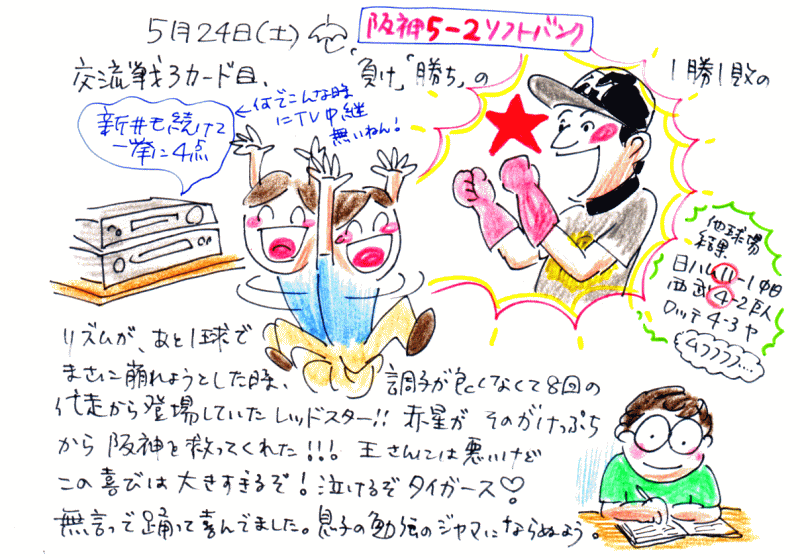 5月24日(土)
阪神5-2ソフトバンク
交流戦3カード目、 負け」「勝ち」の 1勝1敗の
←何でこんな時
にTV中継
無いねん!
新井も続けて
一挙に4点
他球場
結果
日ハム11-1中日
西武4-2巨人
ロッテ4-3ヤ
ムフフフフ…
リズムが、あと1球で
まさに崩れようとした時、 調子が良くなくて8回の
代走から登場していたレッドスター!! 赤星が そのがけっぷち
から 阪神を救ってくれた!!! 王さんには悪いけど
この喜びは大きすぎるぞ!泣けるぞタイガース♡
無言で踊って喜んでました。息子の勉強のジャマにならぬよう。